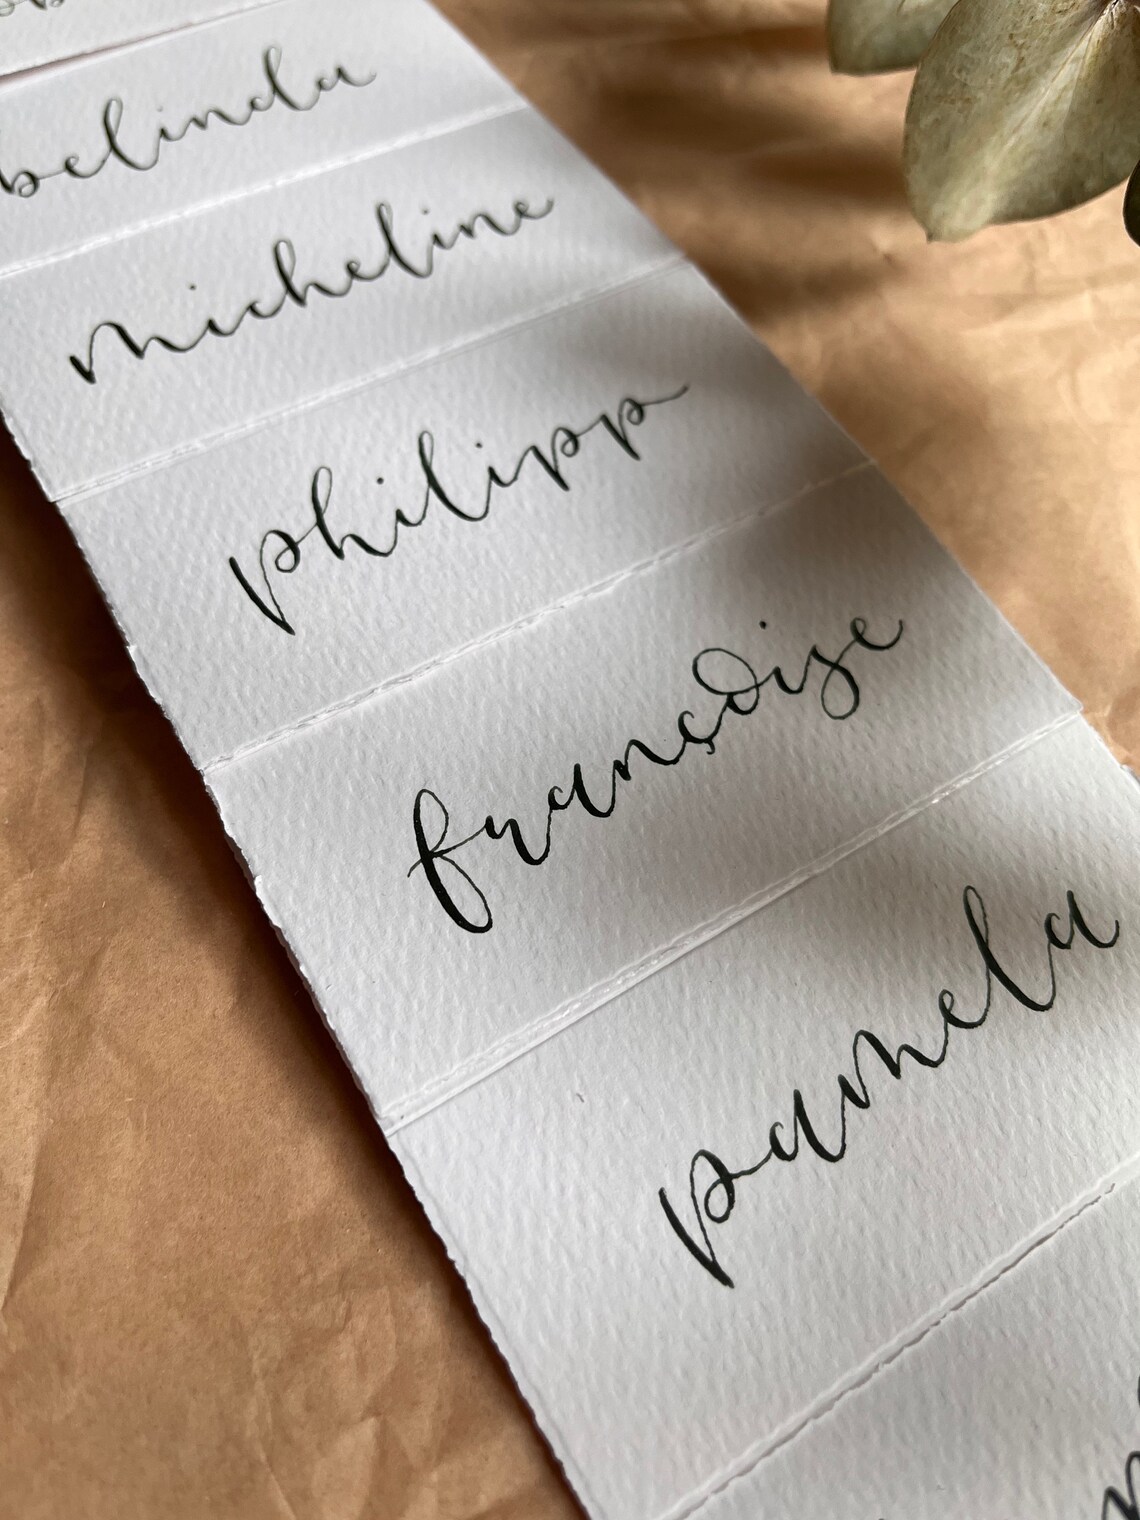 belinda
micheline
philipp
françoise
pamela